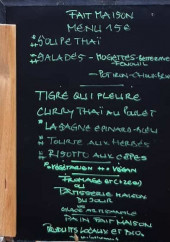 FAIT MAISON
MENU 15€
* SOUPE THAÏ
* SALADES - MOGETTES-BETTERAVE
FENOUIL
- POTIRON-
TIGRE QUI PLEURE
CURRY THAÏ AU POULET
* LASAGNE EPINARD-BLEU
* TOURTE AUX HERBES
* RISOTTO AUX CÈPES
* VÉGÉTARIEN ** VEGAN
FROMAGE
OU
PATISSERIE MAISON
DU JOUR
OU
GLACE ARTISANALE
PAIN FAIT MAISON
PRODUITS LOCAUX ET BIO